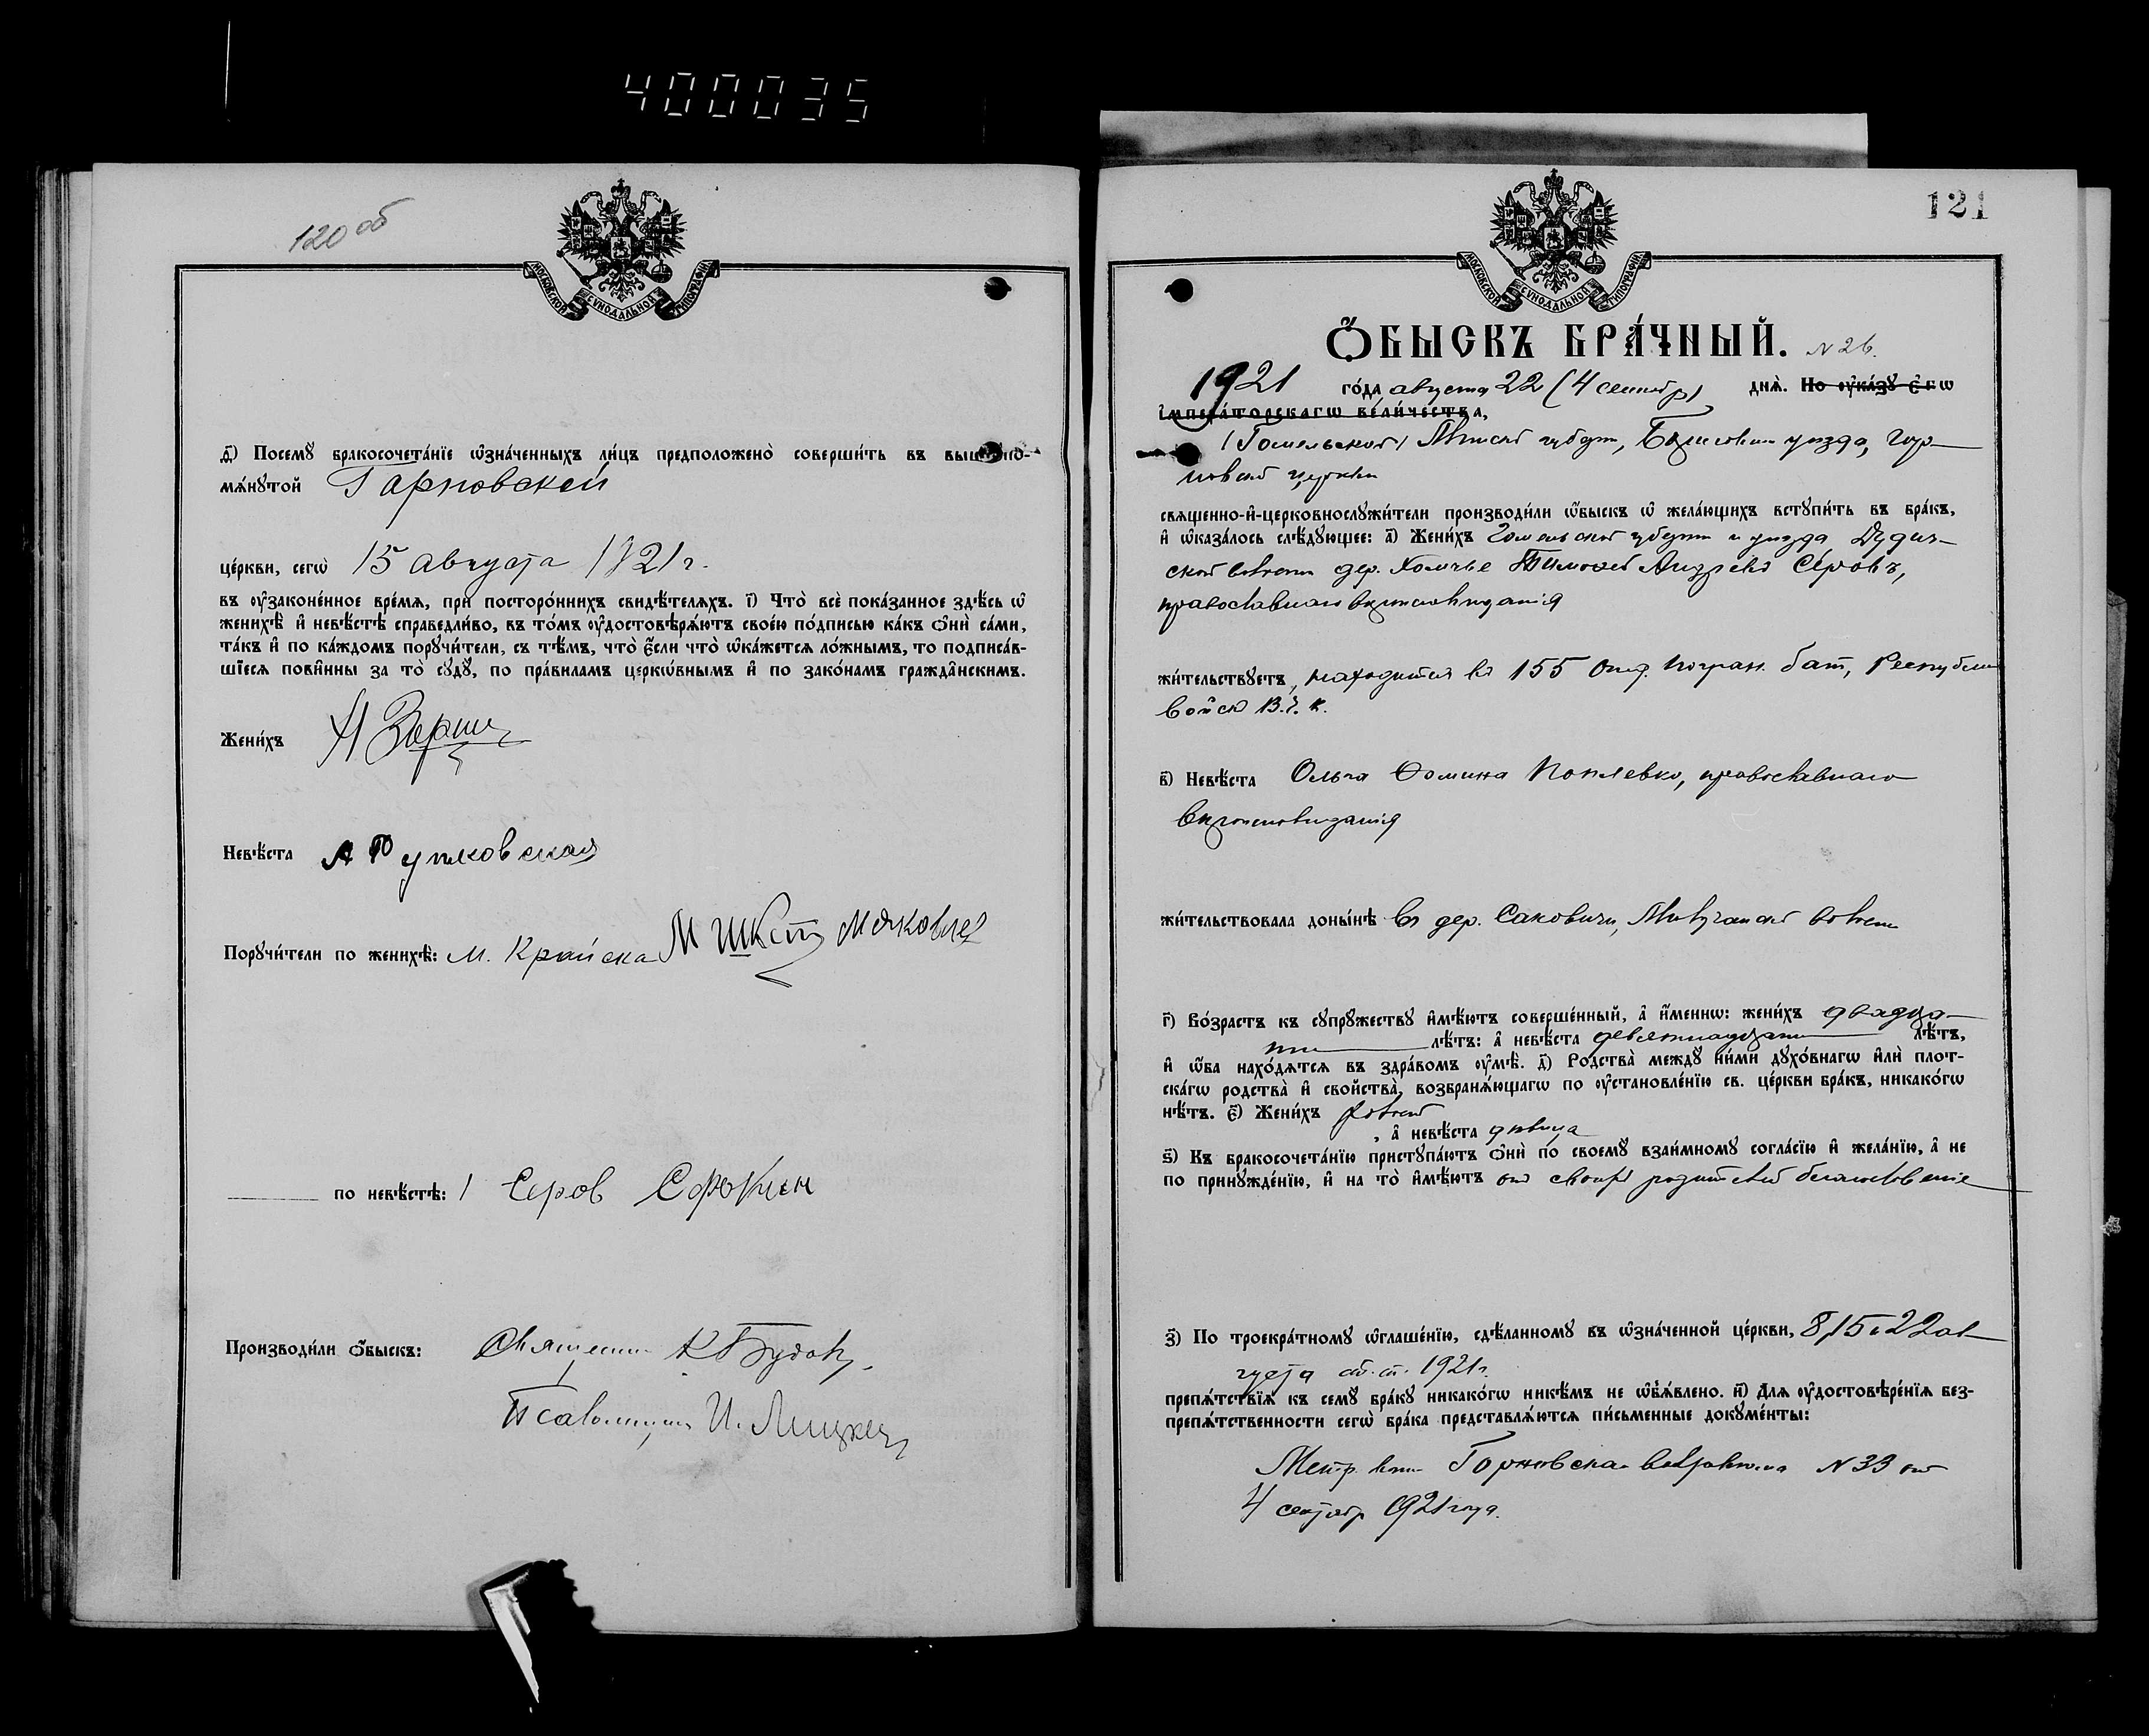 400035
120 об
МОСКОВСКОЙ СѴНОДАЛЬНОЙ ТИПОГРАФІИ
д҃) Посемꙋ̀ бракосочета́нїе ѡ҆зна́ченныхъ ли́цъ предположено̀ соверши́ть въ вышепо-
мѧ́нꙋтой
це́ркви, сегѡ̀ 15 августа 1921 г.
въ ᲂу҆законе́нное вре́мѧ, при посторо́ннихъ свидѣ́телѧхъ. і҃) Что̀ всѐ пока́занное здѣ́сь ѡ҆
женихѣ̀ и҆ невѣ́стѣ справедли́во, въ то́мъ ᲂу҆достовѣрѧ́ютъ свое́ю по́дписью ка́къ ѻ҆нѝ са́ми,
та́къ и҆ по ка́ждомъ порꙋчи́тели, съ тѣ́мъ, что̀ є҆́сли что̀ ѡ҆ка́жетсѧ ло́жнымъ, то подписа́в-
шїесѧ пови́нны за то̀ сꙋдꙋ̀, по пра́виламъ церкѡ́внымъ и҆ по зако́намъ гражда̑нскимъ.
Жени́хъ
Невѣ́ста А
Порꙋчи́тели по женихѣ̀: М.
по невѣ́стѣ: Серов
Производи́ли ѻ҆́быскъ: К
И.
121
МОСКОВСКОЙ СѴНОДАЛЬНОЙ ТИПОГРАФІИ
Ѻ҆́БЫСКЪ БРА́ЧНЫЙ. N 26.
1921 го́да августа 22 (4 сентябр) днѧ̀. По ᲂу҆ка́зꙋ Є҆гѡ̀
І҆мпера́торскагѡ вели́чества,
(Гомельской) Минской губерн, Борисовскаго уѣзда, Гор-
новской церкви
свѧще́нно-и҆-церковнослꙋжи́тели производи́ли ѡ҆́быскъ ѡ҆ жела́ющихъ встꙋпи́ть въ бра́къ,
и҆ ѡ҆каза́лось слѣ́дꙋющее: а҃) Жени́хъ Гомельской губерн и уѣзда
ской волости дер. Тимофей Андреевъ Серовъ,
православнаго вѣроисповѣданія
жи́тельствꙋетъ, находится въ 155 Отд. погран. бат, Республи
войск В.Ч.К.
в҃) Невѣ́ста Ольга Фомина Поплевко, православнаго
вѣроисповѣданія
жи́тельствовала доны́нѣ въ дер. Саковичи, волости
г҃) Во́зрастъ къ сꙋпрꙋ́жествꙋ и҆мѣ́ютъ соверше́нный, а҆ и҆́меннѡ: жени́хъ двадца-
ти лѣ́тъ: а҆ невѣ́ста девятнадцати лѣ́тъ,
и҆ ѡ҆́ба нахо́дѧтсѧ въ здра́вомъ ᲂу҆мѣ̀. д҃) Родства̀ междꙋ̀ ни́ми дꙋхо́внагѡ и҆лѝ плот-
ска́гѡ родства̀ и҆ свойства̀, возбранѧ́ющагѡ по ᲂу҆становле́нїю св. це́ркви бра́къ, никако́гѡ
нѣ́тъ. є҃) Жени́хъ холост
, а҆ невѣ́ста дѣвица
ѕ҃) Къ бракосочета́нїю пристꙋпа́ютъ ѻ҆нѝ по своемꙋ̀ взаи́мномꙋ согла́сїю и҆ жела́нїю, а҆ не
по принꙋжде́нїю, и҆ на то̀ и҆мѣ́ютъ от своихъ родителей благословеніе
з҃) По троекра́тномꙋ ѡ҆глаше́нїю, сдѣ́ланномꙋ въ ѡ҆зна́ченной це́ркви, 8, 15 и 22 ав-
густа ст. ст. 1921 г.
препѧ́тствїѧ къ семꙋ̀ бра́кꙋ никако́гѡ никѣ́мъ не ѡ҆б̾ѧ́влено. и҃) Длѧ ᲂу҆достовѣре́нїѧ без-
препѧ́тственности сегѡ̀ бра́ка представлѧ́ютсѧ пи́сьменные докꙋме́нты:
N 33 от
4 сентябр 1921 года.